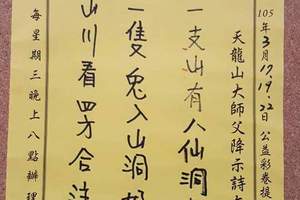 105年3月17.19.22日公益彩卷提
天龍山大師父降示詩
一支山有人仙洞
一隻兔入山洞
山川看四方合
每星期三晚上八點辦理